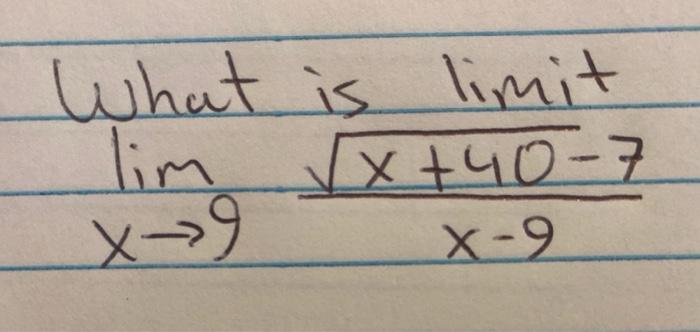 What is limit
lim √(x+40) - 7
x→9 x-9